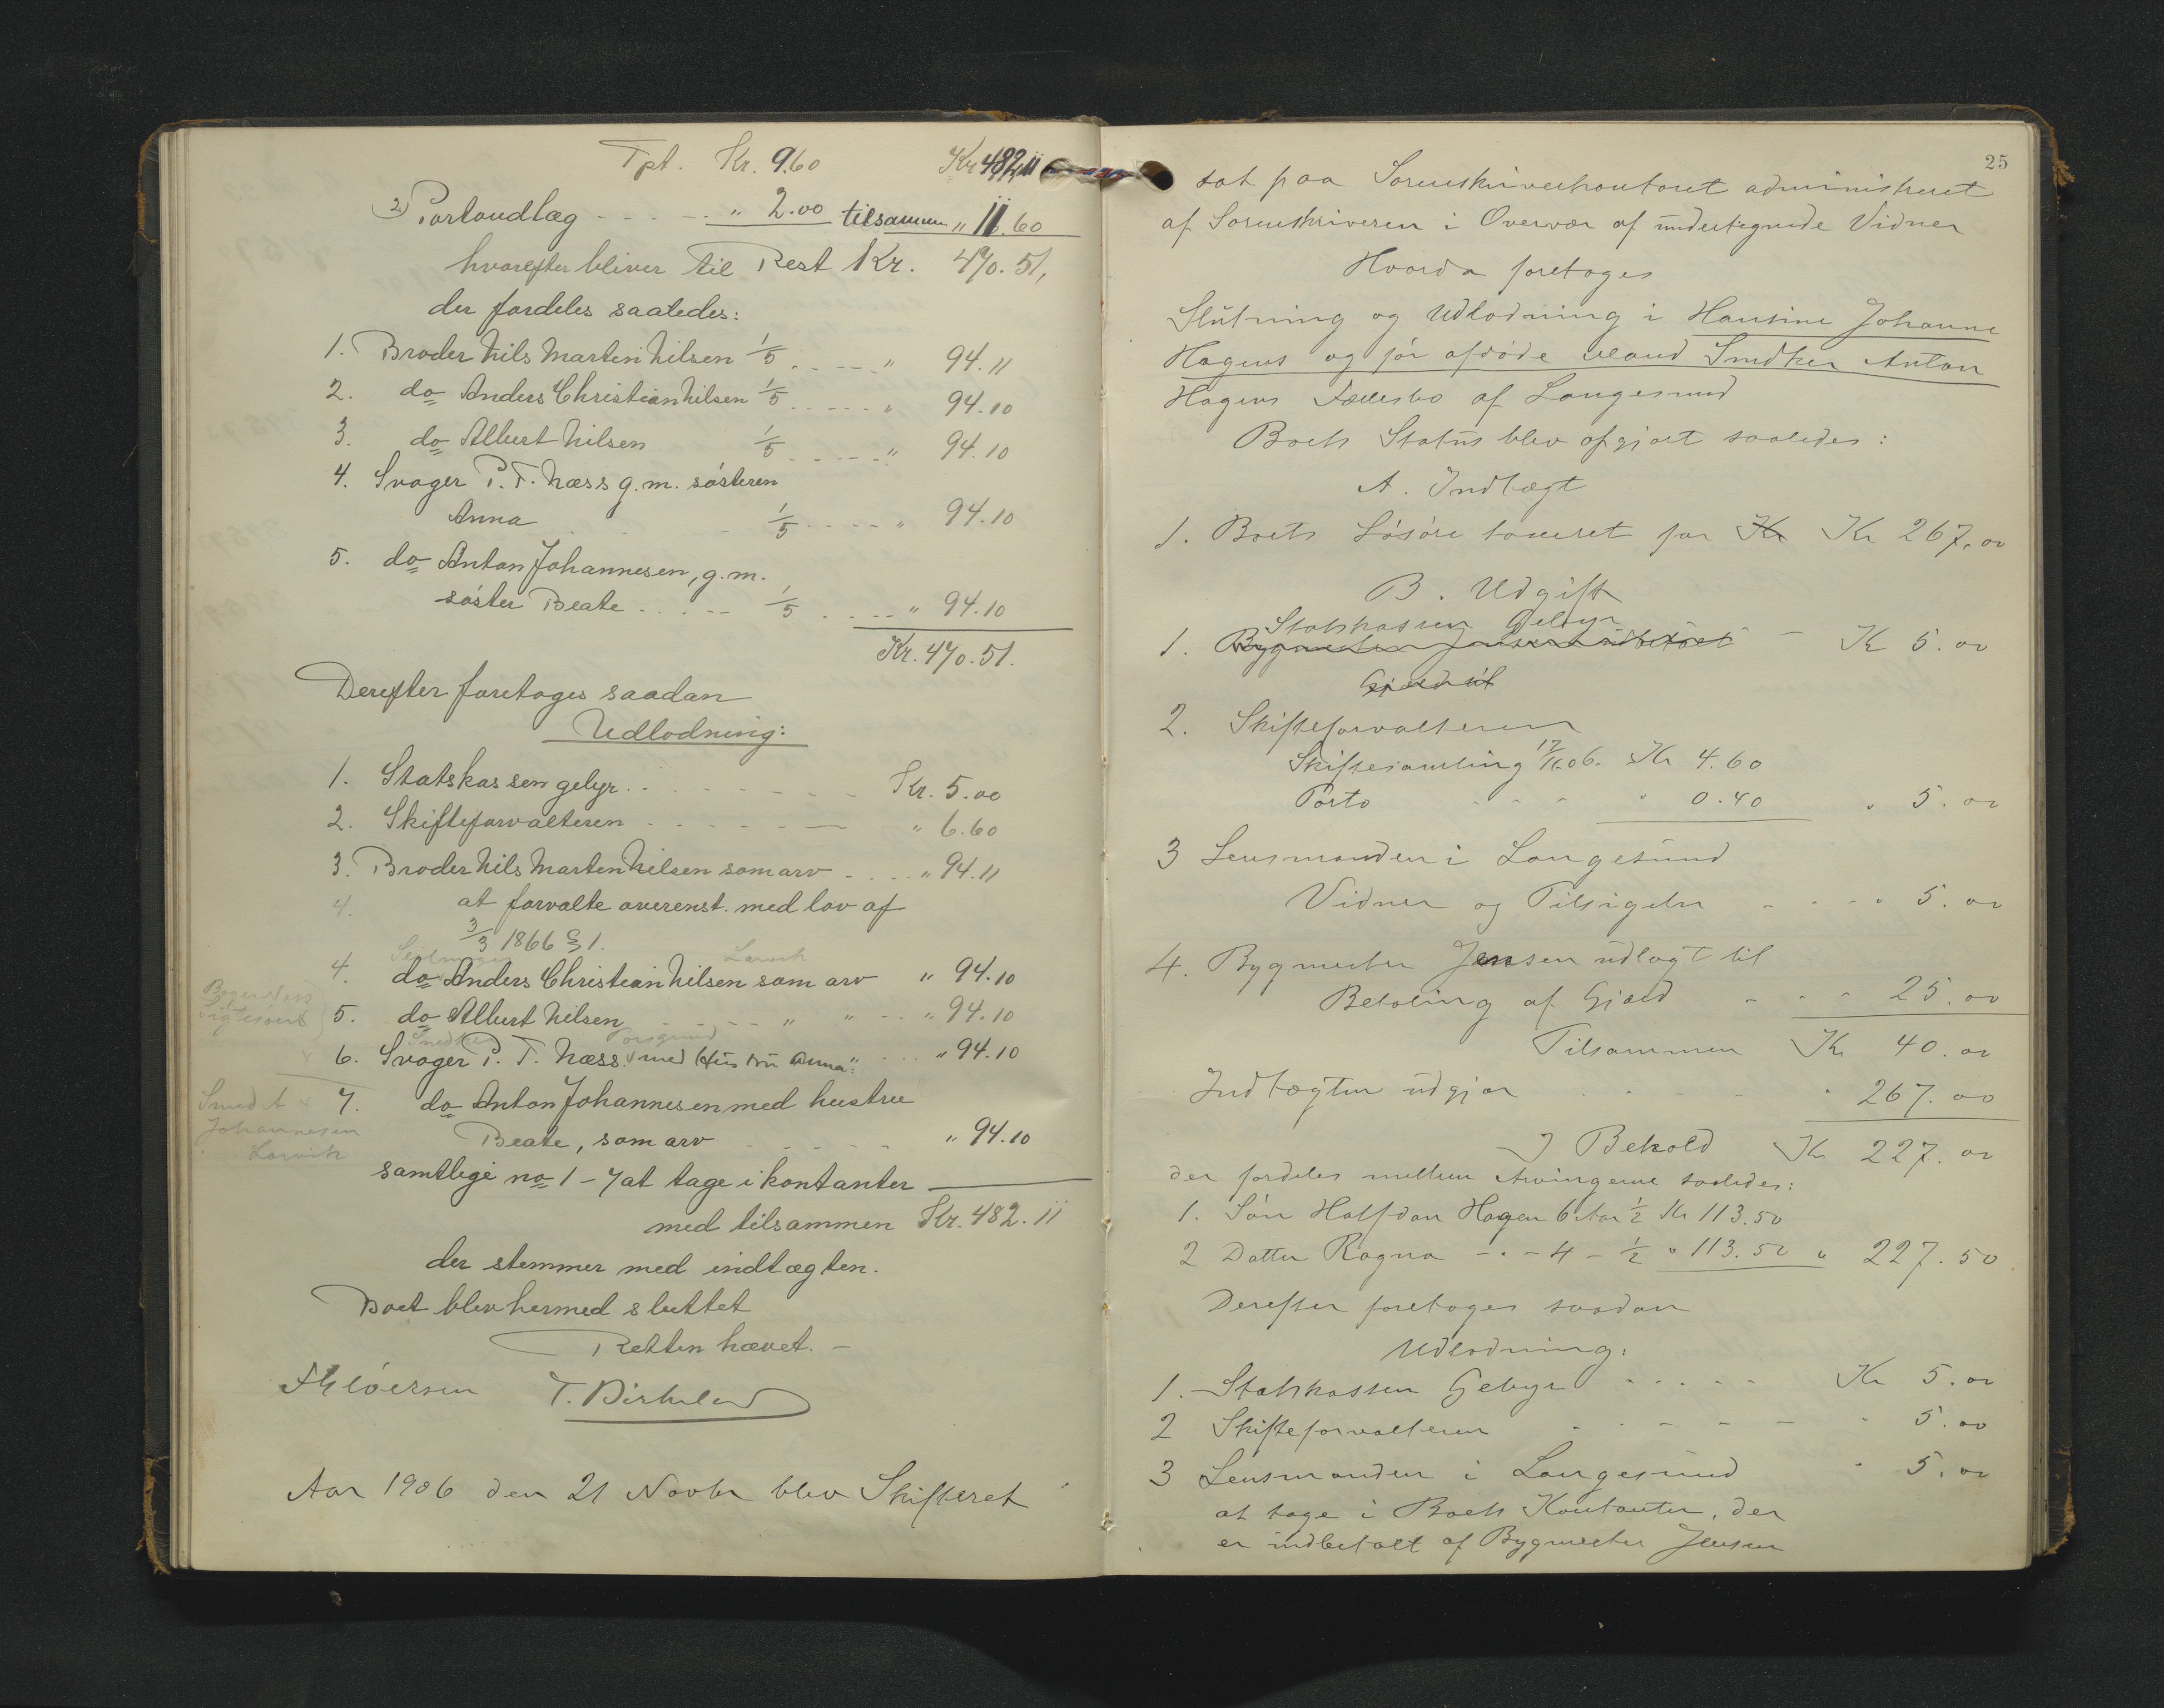 Tpt. Kr. 9.60 Kr 482,11
2) Portoudlæg - - - - - " 2.00 tilsammen " 11.60
hvorefter bliver til Rest Kr. 470.51,
der fordeles saaledes:
1. Broder Nils Martin Nilsen 1/5 - - - - " 94.11
2. do Anders Christian Nilsen 1/5 - - - - " 94.10
3. do Albert Nilsen 1/5 - - - - " 94.10
4. Svoger P. T. Næss g.m. søsteren
Anna 1/5 - - - - " 94.10
5. do Anton Johannesen, g.m.
søster Beate - - - - 1/5 - - - - " 94.10
Kr. 470.51.
Derefter foretoges saadan
Udlodning:
1. Statskassen gebyr - - - - - - - Kr. 5.00
2. Skifteforvalteren - - - - - - " 6.60
3. Broder Nils Marten Nilsen som arv - - - - " 94.11
4. at forvalte overenst. med lov af
3/3 1866 § 1.
Larvik
4. do Anders Christian Nilsen som arv " 94.10
5. do Albert Nilsen - - - - " " - - " 94.10
Snedker Porsgrund
6. Svoger P. T. Næss med Hustru Anna " - - - " 94.10
Smed A
Johannesen
Larvik
7. do Anton Johannesen med hustru
Beate, som arv - - - - - " 94.10
samtlige no 1 - 7 at tage i kontanter
med tilsammen Kr. 482.11
der stemmer med indtægten.
Boet blev hermed sluttet
Retten hævet. -
T. Birkeland
Aar 1906 den 21 Novbr blev Skifteret
25
sat paa Sorenskriverkontoret administreret
af Sorenskriveren i Overvær af undertegnede Vidner
Hvorda foretoges
Slutning og Udlodning i Hansine Johanne
Hagens og før afdøde Mand Snedker Anton
Hagens Fællesbo af Langesund
Boets Status blev opgjort saaledes:
A. Indtægt
1. Boets Løsøre taxeret for Kr Kr 267.00
B. Udgift
Statskassen Gebyr
1. Bygmester Jensen indbetalt - Kr 5.00
Gjæld til
2. Skifteforvalteren
Skiftesamling 17/11.06. Kr 4.60
Porto - - - " 0.40 " 5.00
3 Lensmanden i Langesund
Vidner og Tilsigelse - - - " 5.00
4. Bygmester Jensen udlagt til
Betaling af Gjæld - - - 25.00
Tilsammen Kr 40.00
Indtægten udgjør - - - - " 267.00
I Behold Kr 227.00
der fordeles mellem Arvingerne saaledes:
1. Søn Halfdan Hagen 6 Aar 1/2 Kr 113.50
2 Datter Ragna - " - 4 - 1/2 " 113.50 " 227.50
Derefter foretoges saadan
Udlodning:
1. Statskassen Gebyr - - - - - Kr 5.00
2 Skifteforvalteren - - - - - " 5.00
3 Lensmanden i Langesund " 5.00
at tage i Boets Kontanter, der
er indbetalt af Bygmester Jensen